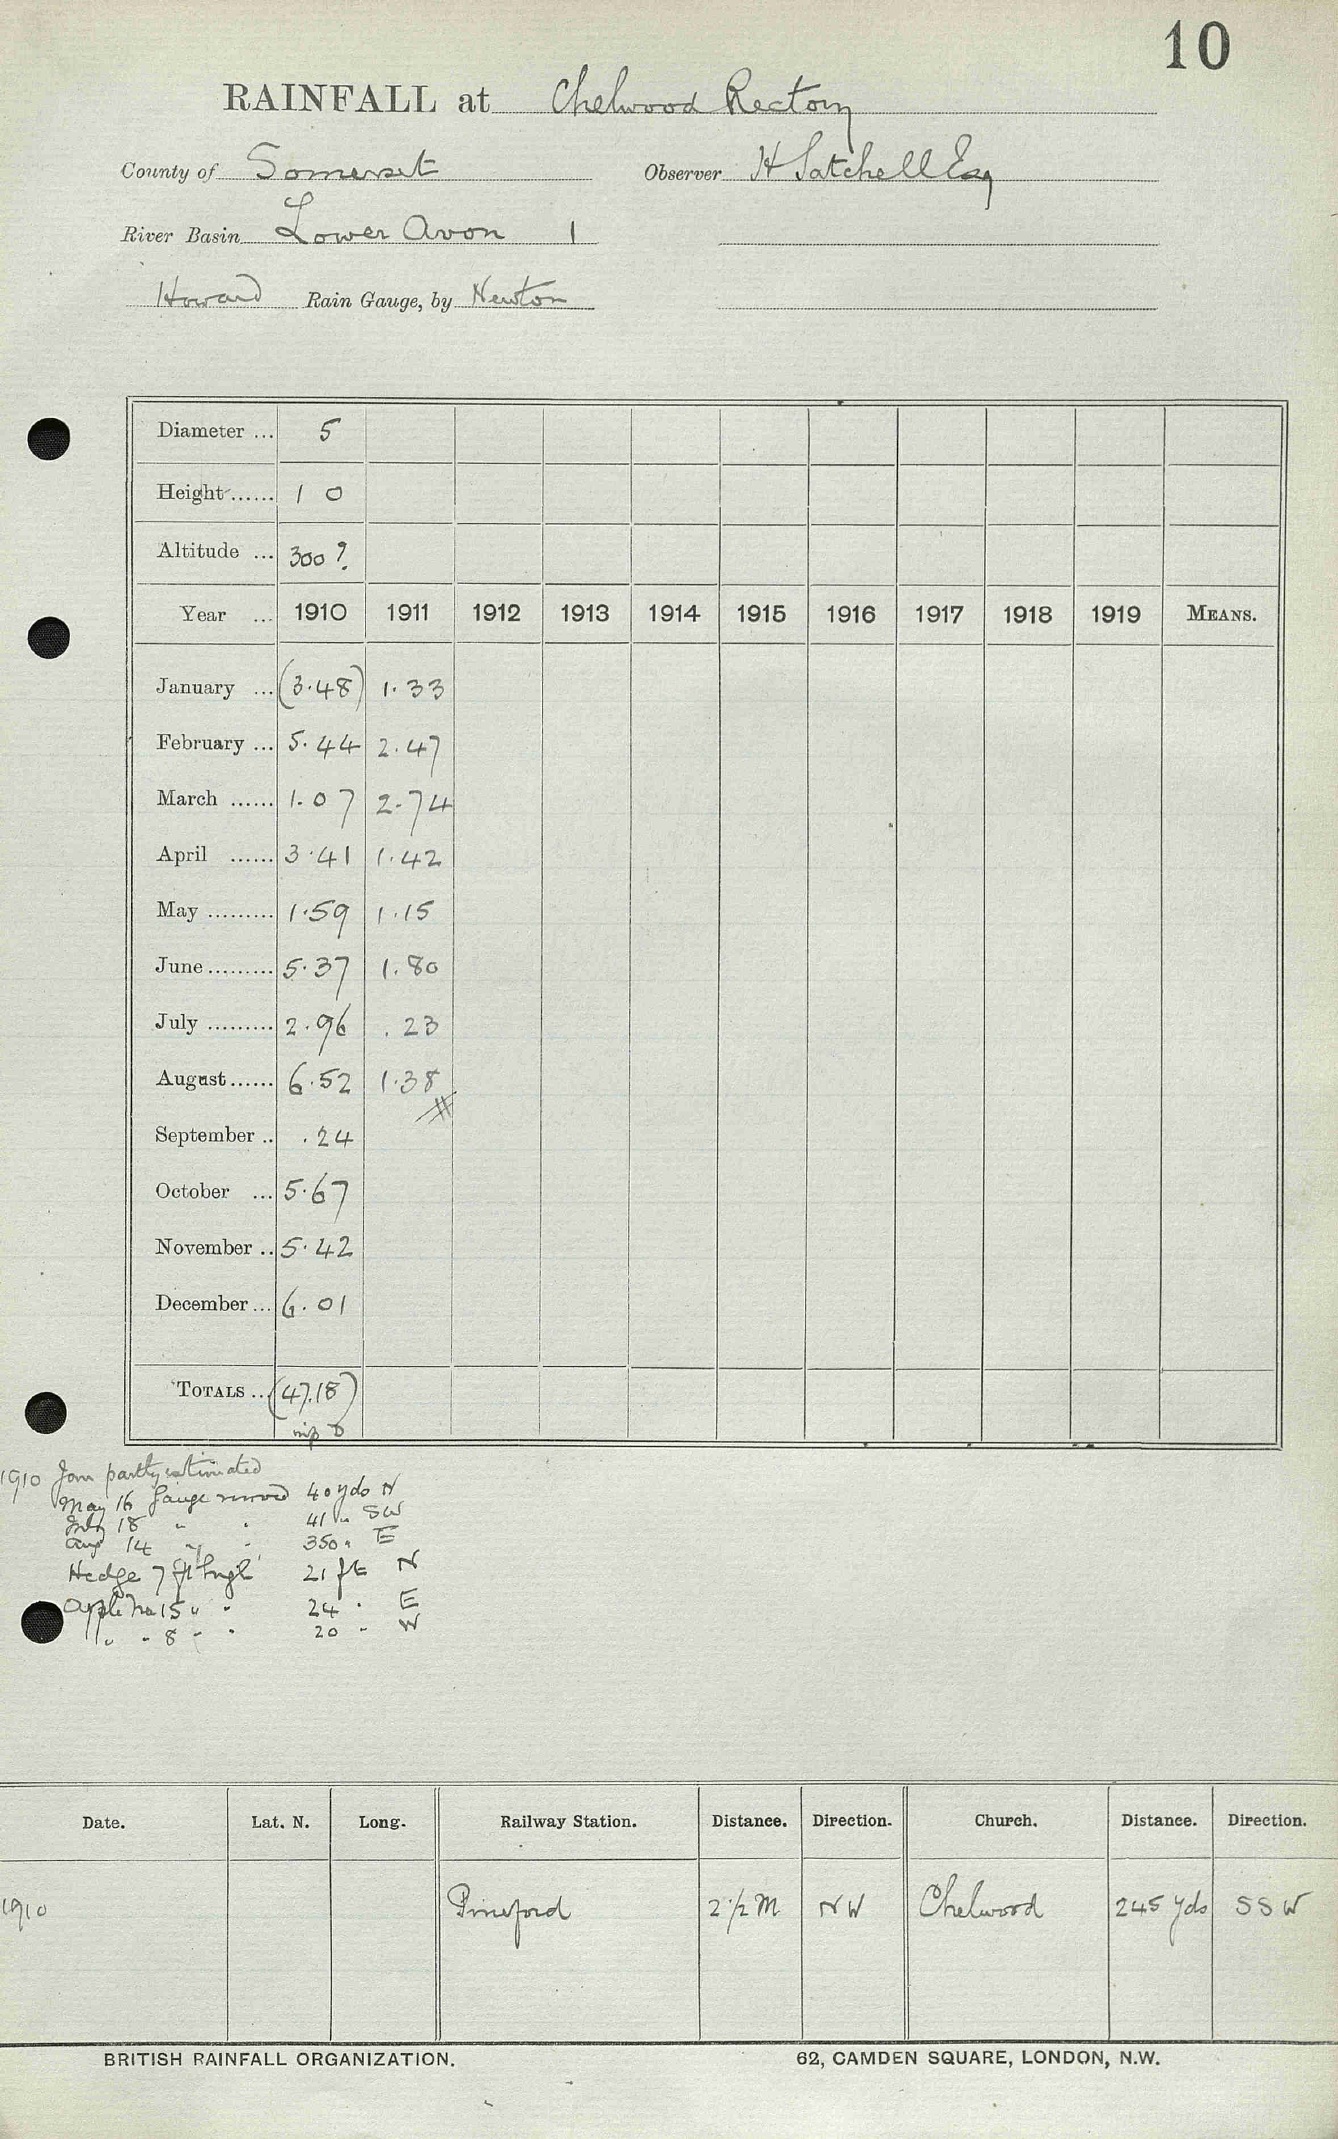 10
RAINFALL at Chelwood Rectory
County of Somerset Observer H Satchell Esq
River Basin Lower Avon 1
Howard Rain Gauge, by Newton
Diameter ... 5
Height ...... 1 0
Altitude ... 300 ?
Year ... 1910 1911 1912 1913 1914 1915 1916 1917 1918 1919 MEANS.
January ... (3.48) 1.33
February ... 5.44 2.47
March ...... 1.07 2.74
April ...... 3.41 1.42
May ......... 1.59 1.15
June ......... 5.37 1.80
July ......... 2.96 .23
August ...... 6.52 1.38
September .. .24
October ... 5.67
November .. 5.42
December ... 6.01
TOTALS .. (47.18)
1910 Jan partly estimated
May 16 Gauge moved 40 yds N
July 18 " " 41 " SW
Aug 14 " " 350 " E
Hedge 7 ft high 21 ft N
Apple tree 15 " " 24 " E
" " 8 " " 20 " W
Date. Lat. N. Long. Railway Station. Distance. Direction. Church. Distance. Direction.
1910 Pensford 2 1/2 M NW Chelwood 245 yds SSW
BRITISH RAINFALL ORGANIZATION. 62, CAMDEN SQUARE, LONDON, N.W.